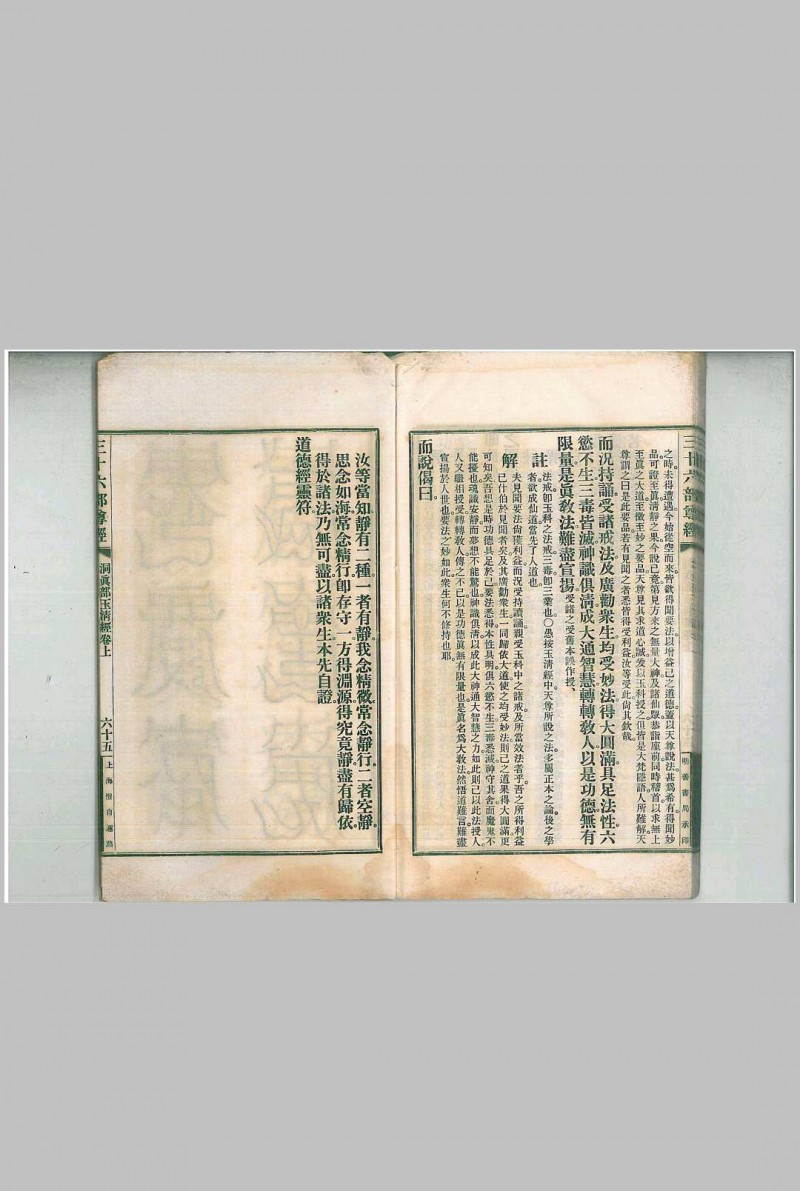 三十六部尊經
明善書局承印
之時未得遭遇今始從空而來皆欲得聞要法以增益己之道德蓋以天尊說法甚爲希有得聞妙
品可證至眞淸靜之果今說已竟第見方來之無量大神及諸仙眾恭詣座前同時稽首以求無上
至眞之大道至微至妙之要品天尊見其求道心誠爰以玉科授之但皆是大梵隱語人所難解天
尊謂之曰是此要品若有見聞之者悉皆得受利益汝等受此尙其欽哉
而況持誦受諸戒法及廣勸衆生均受妙法得大圓滿具足法性六
慾不生三毒皆滅神識俱淸成大通智慧轉轉敎人以是功德無有
限量是眞敎法難盡宣揚受諸之受舊本誤作授
註 法戒卽玉科之法戒三毒卽三業也〇愚按玉淸經中天尊所說之法多屬正本之論後之學
者欲成仙道當先了人道也
解 夫見聞要法尙獲利益而況受持讀誦親受玉科中之諸戒及所當效法者乎吾之所得利益
已什伯於見聞者矣及其廣勸衆生一同歸依大道使之均受妙法則已之道果得大圓滿更
可知矣吾想是時功德具足於已要法悉得本性具明俱六慾不生三毒悉滅神守其舍而魔鬼不
能擾也魂識安靜而夢想不能驚也神識俱淸以成此大神通大智慧之力如此則已以此法授人
人又繼相授受轉轉敎人傳之不已以是功德眞無有限量也是眞名爲大敎法然悟道難言難盡
宣揚於人世也要法之妙如此衆生何不修持也耶
而說偈曰
汝等當知靜有二種一者有靜我念精微常念靜行二者空靜
思念如海常念精行卽存守一方得淵源得究竟靜盡有歸依
得於諸法乃無可盡以諸衆生本先自證
道德經靈符
三十六部尊經
洞眞部玉淸經卷上
六十五